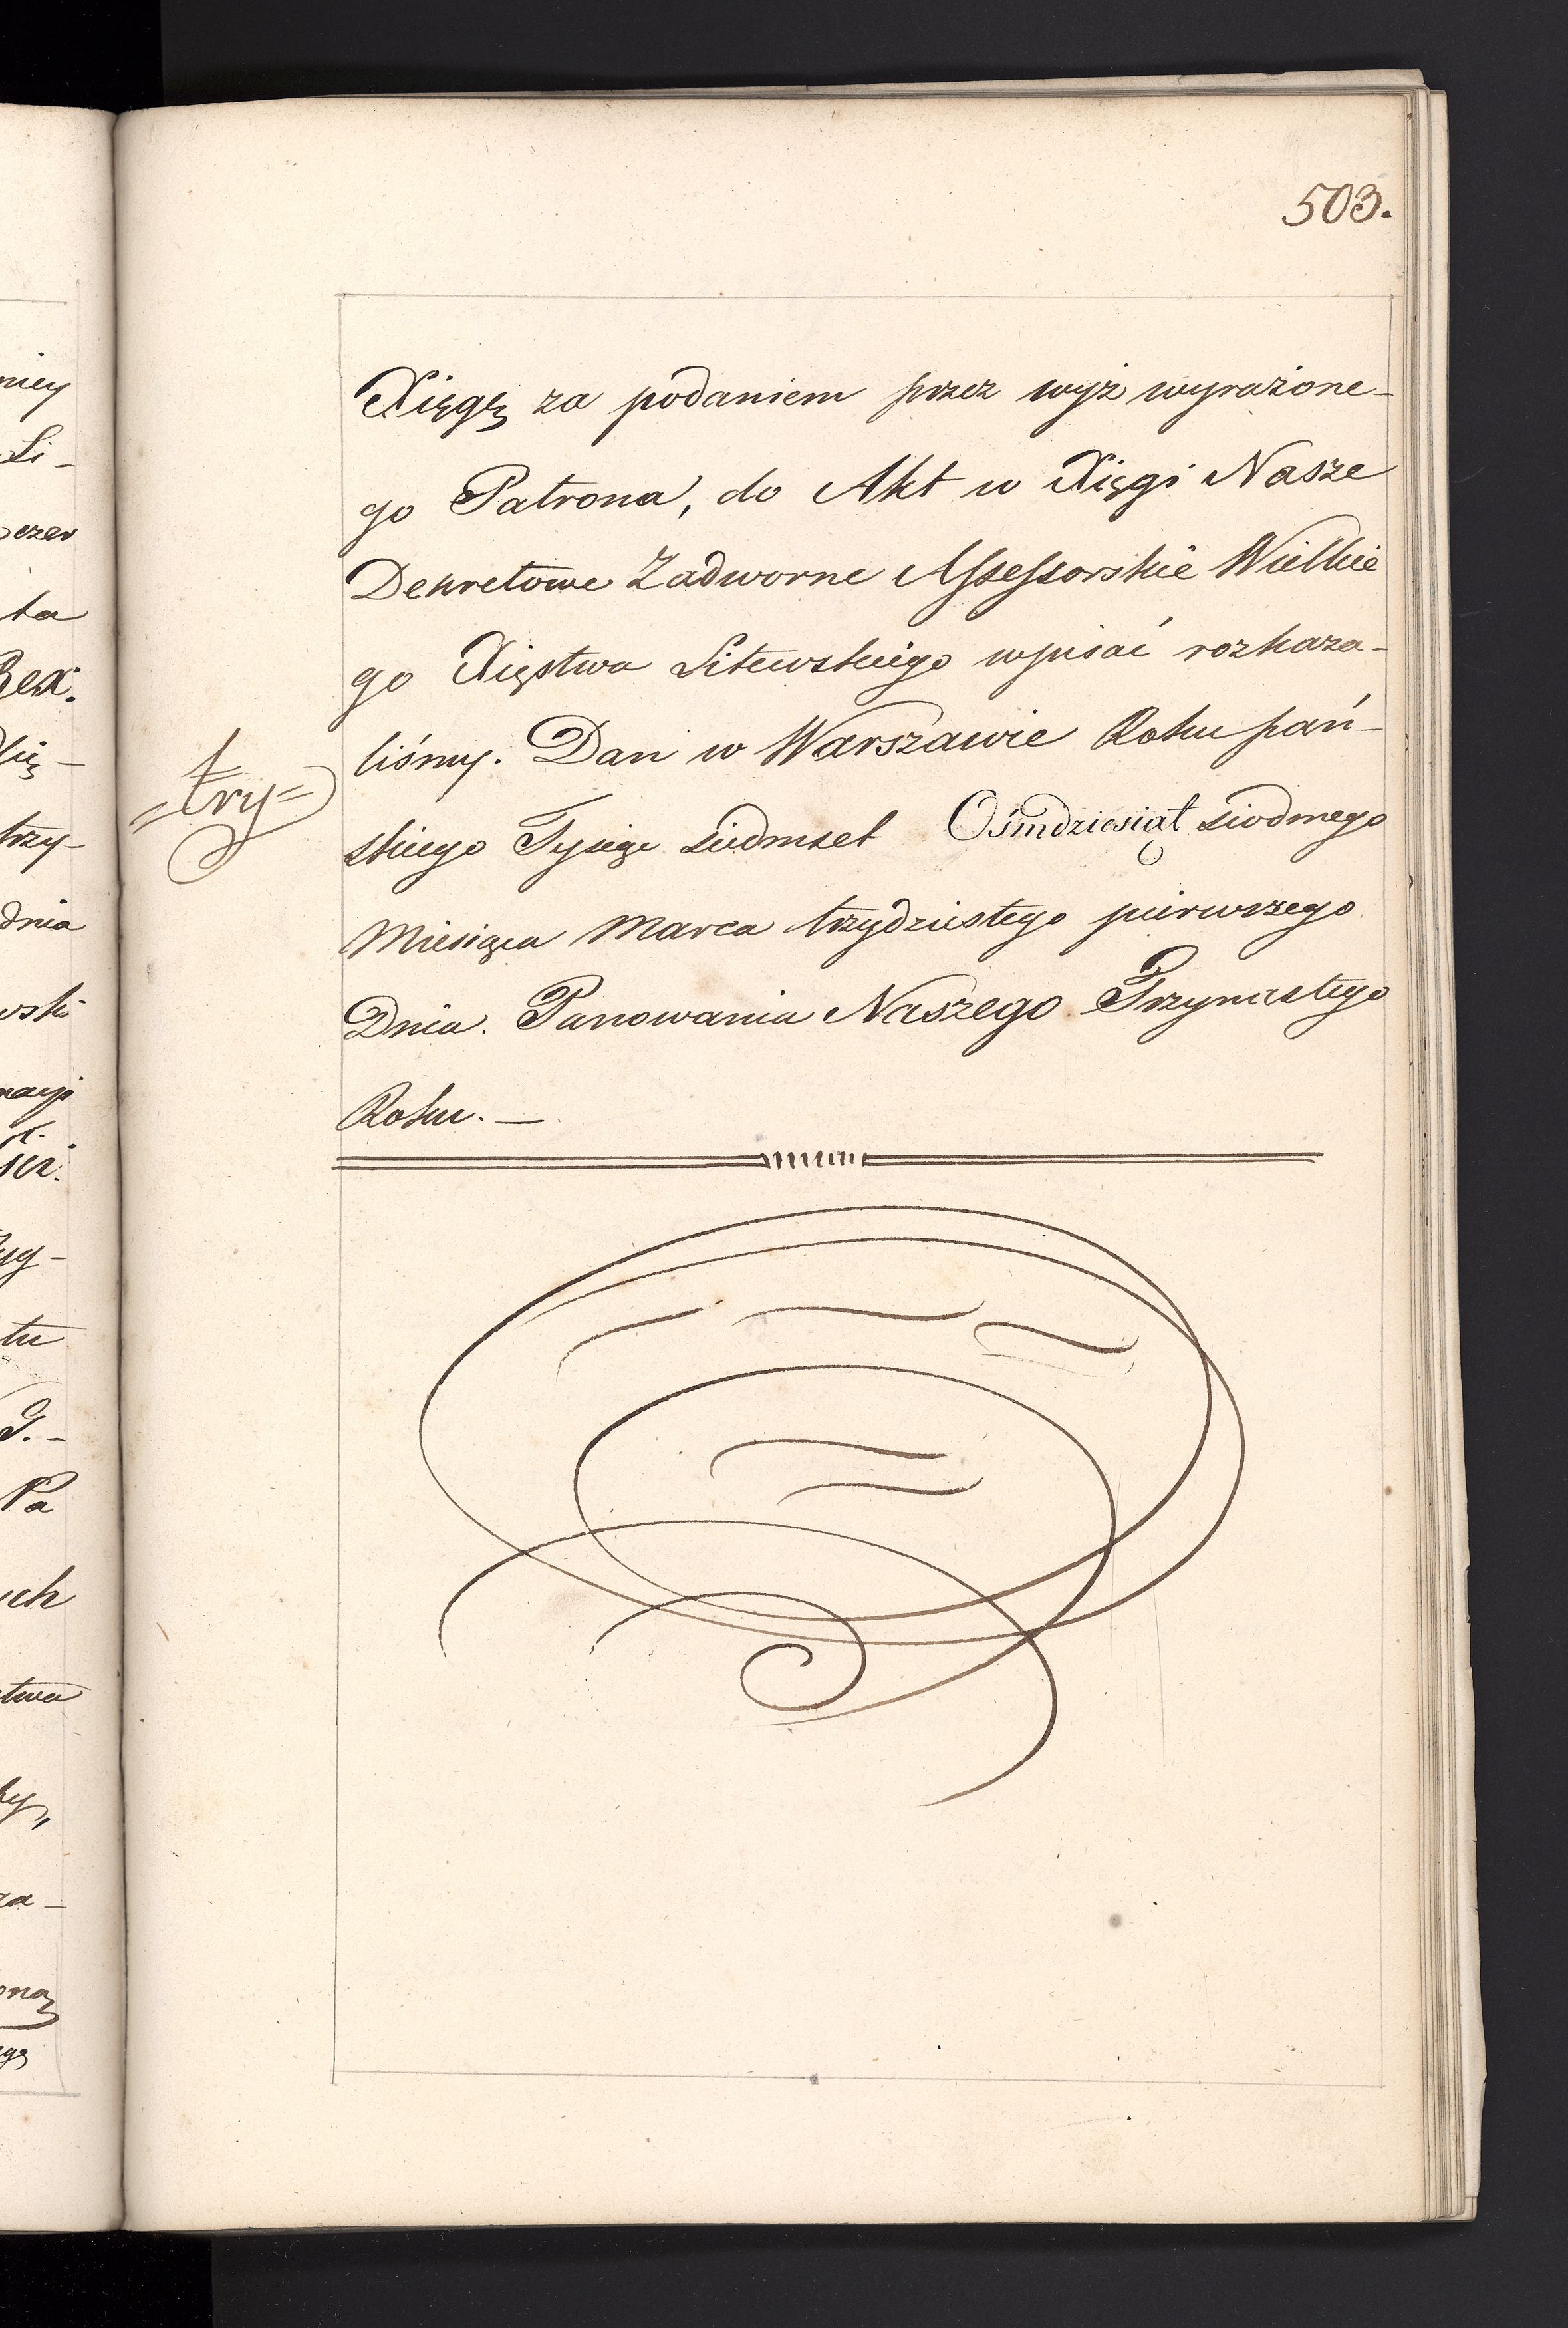 503.
Xięgę za podaniem przez wyż wyrażone-
go Patrona, do Akt w Xięgi Nasze
Dekretowe Zadworne Assessorskie Wielkie
go Xięstwa Litewskiego wpisać rozkaza-
liśmy. Dan w Warszawie Roku pań-
skiego Tysiąc siedmset Ośmdziesiąt siodmego
Miesiąca Marca trzydziestego pierwszego
Dnia. Panowania Naszego Trzynastego
Roku. —
=try=
niey
Li-
ta
Rex.
trzy-
dnia
wski
tu
G.-
Pa
ych
stwa
za-